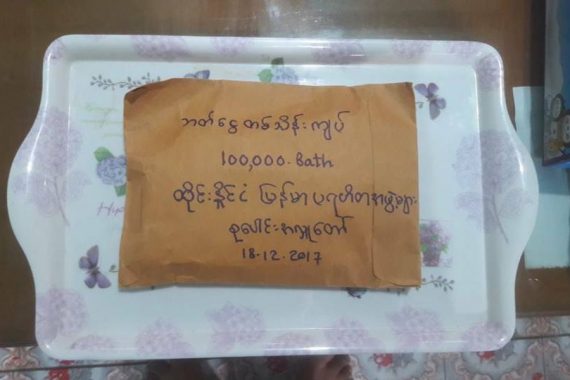 ဘတ်ငွေ တစ်သိန်းကျပ်
100,000.Bath
ထိုင်းနိုင်ငံ မြန်မာပရဟိတအဖွဲ့များ
စုပေါင်းအလှူတော်
18.12.2017